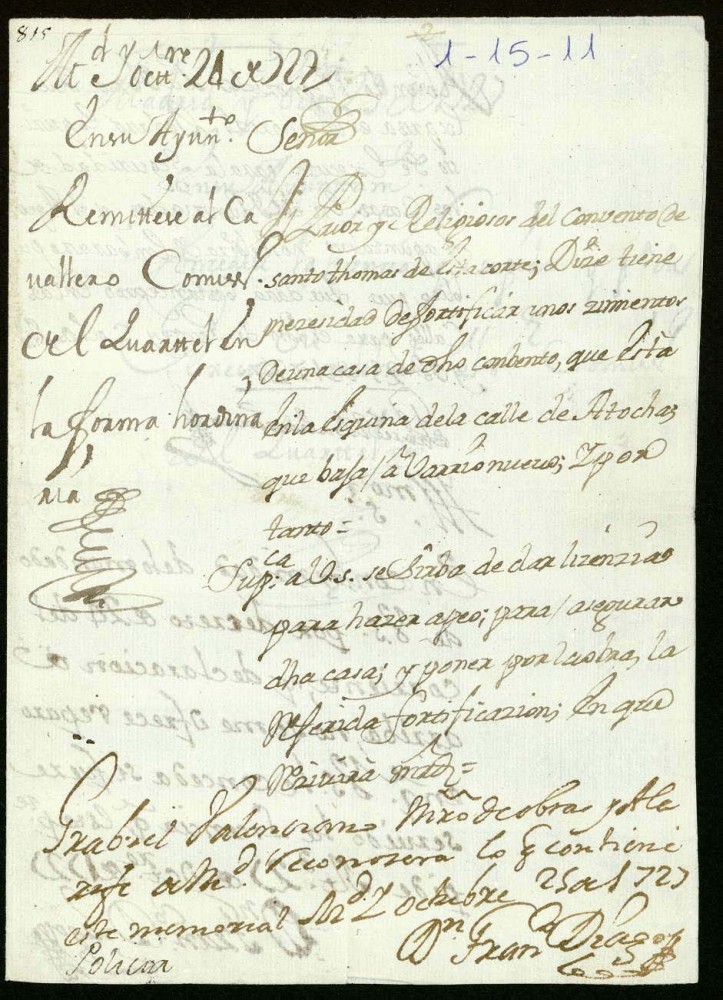 815
1-15-11
Md y octre 24 de 727
En su Ayunto.
Señor
Remittese al Ca
vallero Comiss.
del Quartel en
la forma hordina
ria
Prior y Religiosos del Convento de
santo thomas de esta corte; Dize tiene
nezesidad de fortificar unos zimientos
de una casa de dho conbento, que esta
en la esquina de la calle de Atocha,
que basa a Varrio nuevo; Y por
tanto =
Supca. a V.S. se sirba de dar lizenzia
para hazer apeo; para asegurar
dha casa; y poner por la obra, la
Referida fortificazion; en que
Rezivira mrd =
Grabiel Valenciano Mro de obras y Ala
rife de Md Reconosera lo q contiene
este memorial Md y octubre 25 de 1727
Dn Franco
Policia